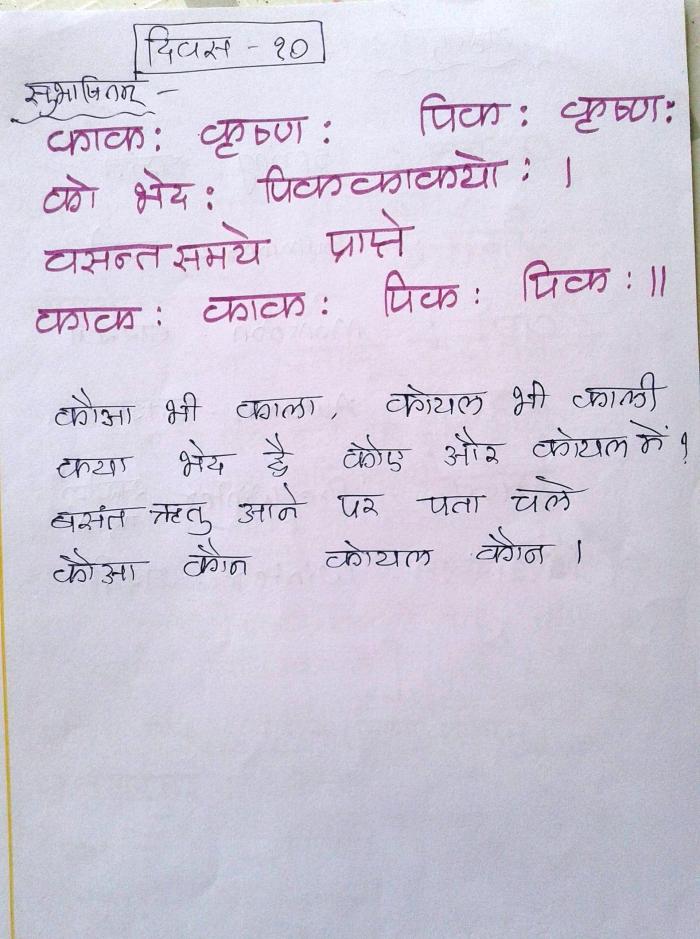 दिवस - १०
सुभाषितम् -
काक: कृष्ण: पिक: कृष्ण:
को भेद: पिककाकयो: ।
वसन्तसमये प्राप्ते
काक: काक: पिक: पिक: ॥
कौआ भी काला, कोयल भी काली
क्या भेद है कौए और कोयल में?
बसंत ऋतु आने पर पता चले
कौआ कौन कोयल कौन ।